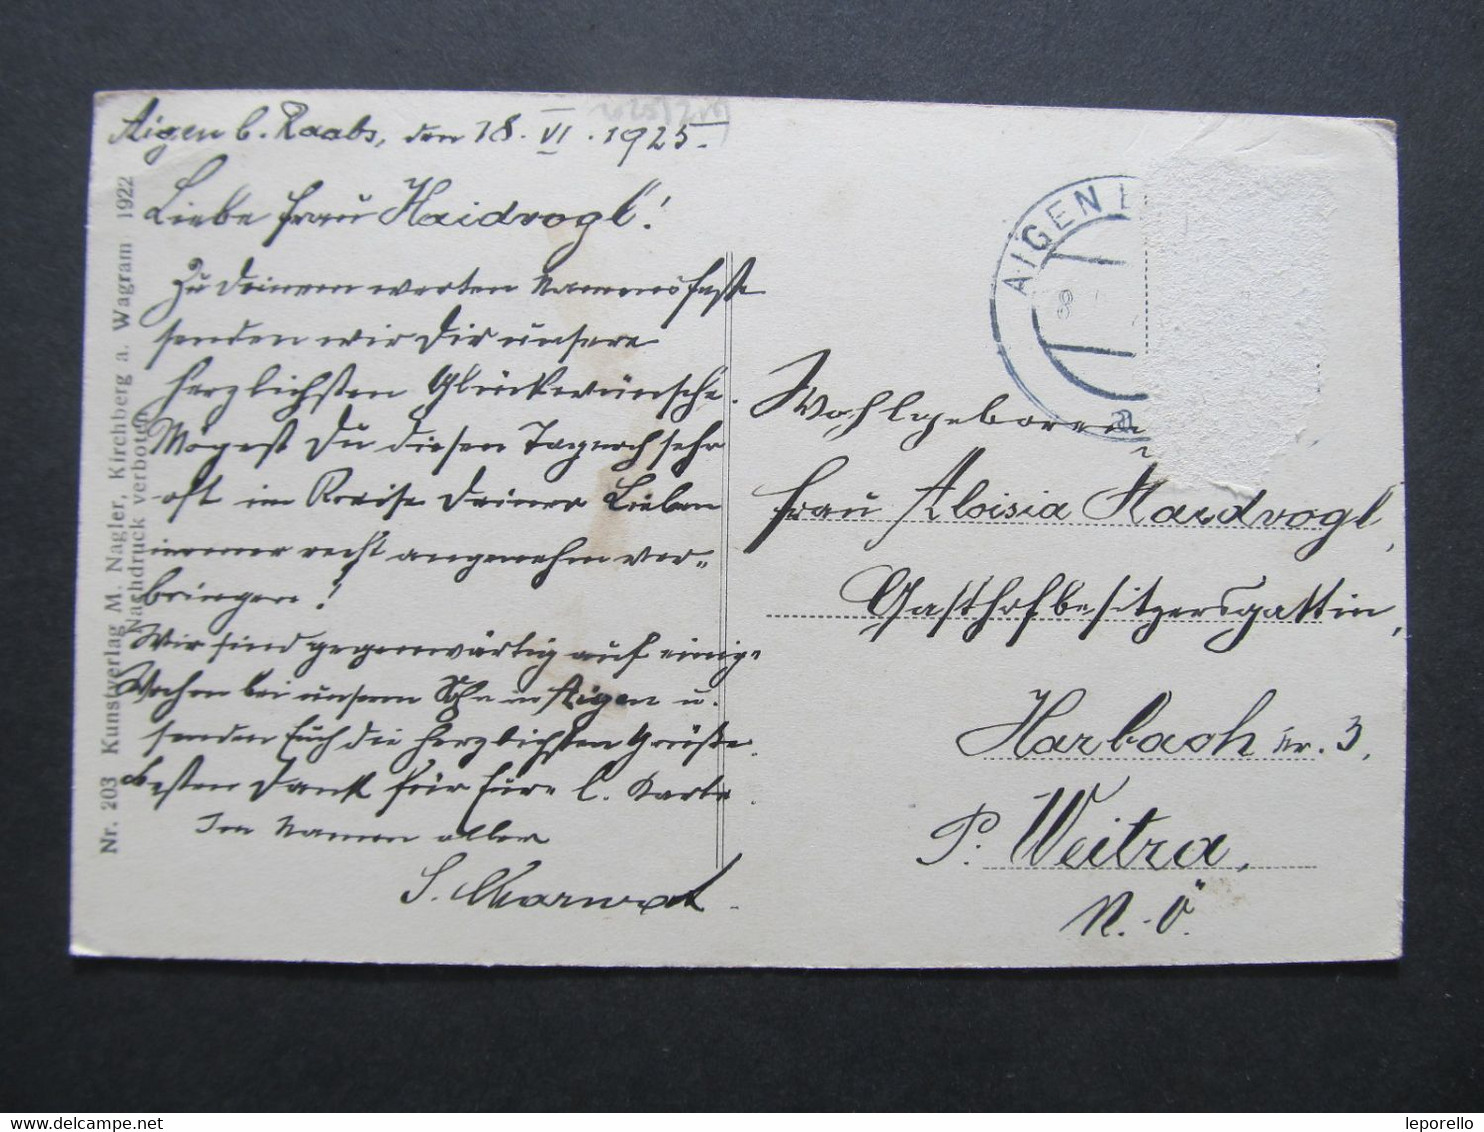 Aigen b. Raabs, den 18. VI. 1925.
Liebe Frau Haidvogl!
Zu Deinem werten Namensfeste
senden wir Dir unsere
herzlichsten Glückwünsche.
Mögest Du diesen Tag noch sehr
oft im Kreise Deiner Lieben
immer recht angenehm ver-
bringen!
Wir sind gegenwärtig auf einige
Wochen bei unserm Sohn in Aigen u.
senden Euch die herzlichsten Grüße.
Besten Dank für Eure l. Karte.
Im Namen aller
Nr. 203 Kunstverlag M. Nagler, Kirchberg a. Wagram 1922
Nachdruck verboten
AIGEN
8
a
Wohlgeboren
Frau Aloisia Haidvogl,
Gasthofbesitzersgattin,
Harbach Nr. 3,
P. Weitra,
N.-Ö.
leporello